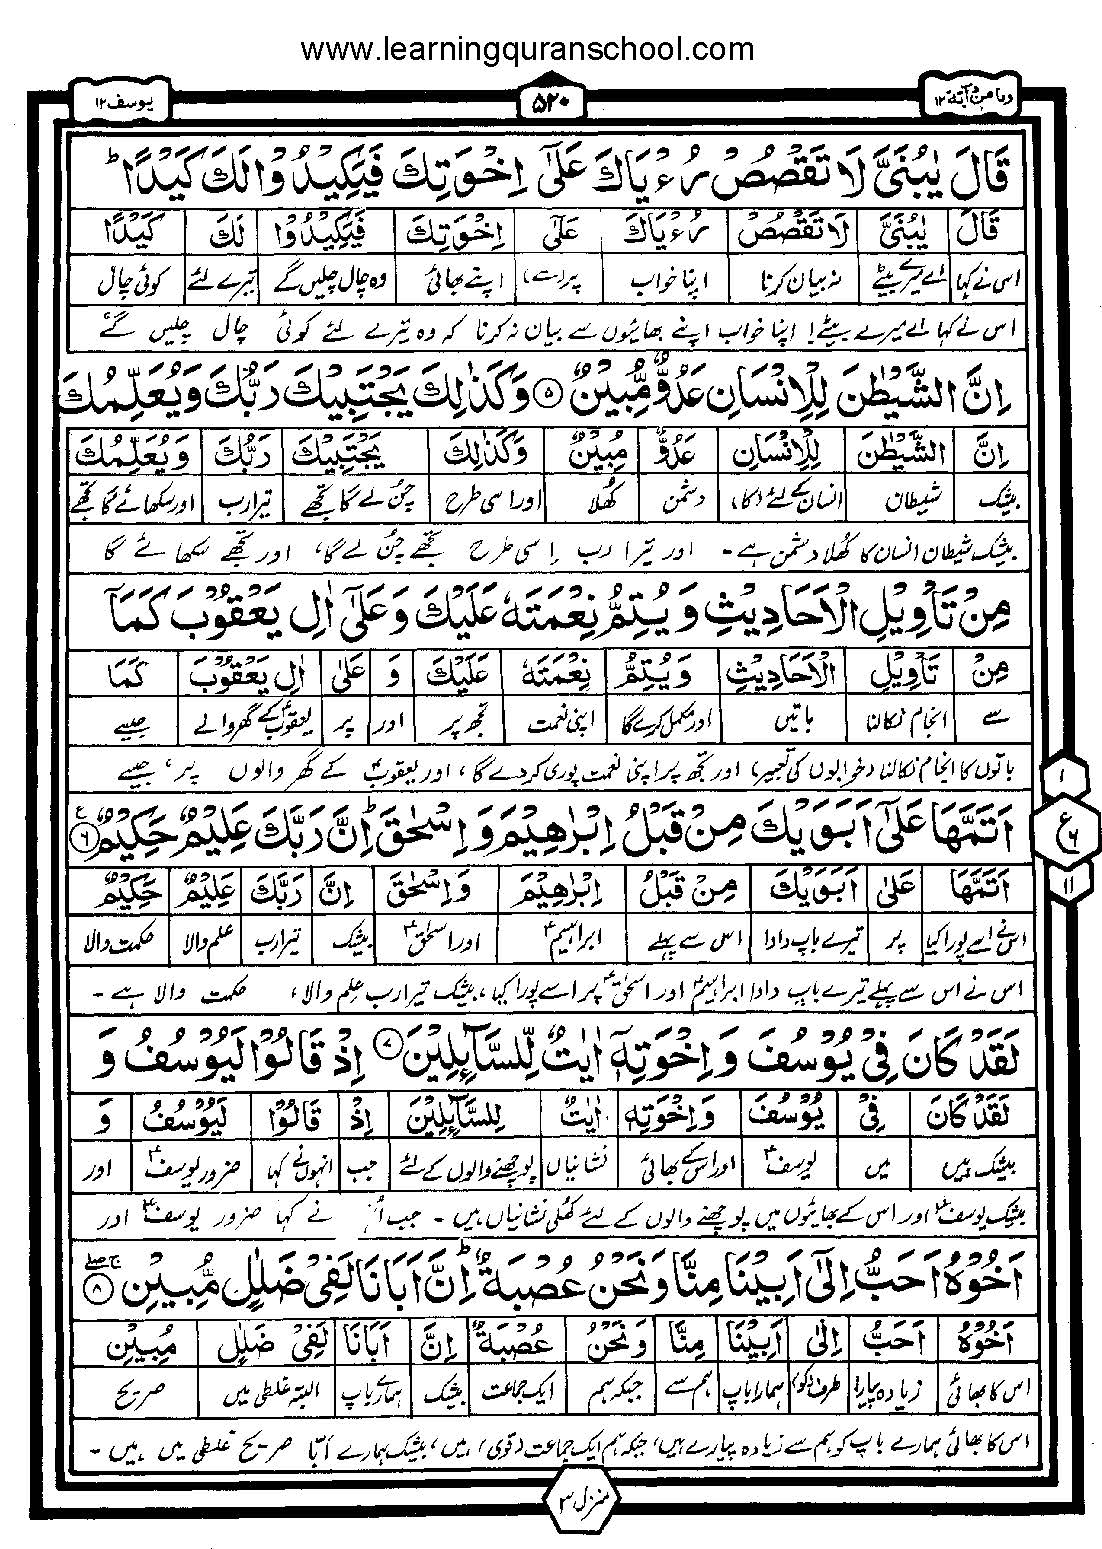 www.learningquranschool.com
وما من دآبة ١٢
۵۲۰
یوسف ١٢
قَالَ يٰبُنَيَّ لَا تَقْصُصْ رُءْيَاكَ عَلٰٓى اِخْوَتِكَ فَيَكِيْدُوْا لَكَ كَيْدًا ؕ
قَالَ يٰبُنَيَّ لَا تَقْصُصْ رُءْيَاكَ عَلٰٓى اِخْوَتِكَ فَيَكِيْدُوْا لَكَ كَيْدًا
اس نے کہا اے میرے بیٹے نہ بیان کرنا اپنا خواب پر (سے) اپنے بھائی وہ چال چلیں گے تیرے لئے کوئی چال
اس نے کہا اے میرے بیٹے! اپنا خواب اپنے بھائیوں سے بیان نہ کرنا کہ وہ تیرے لئے کوئی چال چلیں گے،
اِنَّ الشَّيْطٰنَ لِلْاِنْسَانِ عَدُوٌّ مُّبِيْنٌ ۵ وَكَذٰلِكَ يَجْتَبِيْكَ رَبُّكَ وَيُعَلِّمُكَ
اِنَّ الشَّيْطٰنَ لِلْاِنْسَانِ عَدُوٌّ مُبِيْنٌ وَكَذٰلِكَ يَجْتَبِيْكَ رَبُّكَ وَيُعَلِّمُكَ
بیشک شیطان انسان کے لئے (کا) دشمن کھلا اور اسی طرح چن لے گا تجھے تیرا رب اور سکھائے گا تجھے
بیشک شیطان انسان کا کھلا دشمن ہے۔ اور تیرا رب اسی طرح تجھے چن لے گا، اور تجھے سکھائے گا
مِنْ تَاْوِيْلِ الْاَحَادِيْثِ وَيُتِمُّ نِعْمَتَهٗ عَلَيْكَ وَعَلٰٓى اٰلِ يَعْقُوْبَ كَمَآ
مِنْ تَاْوِيْلِ الْاَحَادِيْثِ وَيُتِمُّ نِعْمَتَهٗ عَلَيْكَ وَ عَلٰى اٰلِ يَعْقُوْبَ كَمَا
سے انجام نکالنا باتیں اور مکمل کرے گا اپنی نعمت تجھ پر اور پر یعقوبؑ کے گھر والے جیسے
باتوں کا انجام نکالنا (خوابوں کی تعبیر) اور تجھ پر اپنی نعمت پوری کر دے گا، اور یعقوبؑ کے گھر والوں پر، جیسے
١
ع ٦
١١
اَتَمَّهَا عَلٰٓى اَبَوَيْكَ مِنْ قَبْلُ اِبْرٰهِيْمَ وَاِسْحٰقَ ؕ اِنَّ رَبَّكَ عَلِيْمٌ حَكِيْمٌ ۶ ع
اَتَمَّهَا عَلٰى اَبَوَيْكَ مِنْ قَبْلُ اِبْرٰهِيْمَ وَاِسْحٰقَ اِنَّ رَبَّكَ عَلِيْمٌ حَكِيْمٌ
اس نے اسے پورا کیا پر تیرے باپ دادا اس سے پہلے ابراہیمؑ اور اسحٰقؑ بیشک تیرا رب علم والا حکمت والا
اس نے اس سے پہلے تیرے باپ دادا ابراہیمؑ اور اسحٰقؑ پر اسے پورا کیا، بیشک تیرا رب علم والا، حکمت والا ہے۔
لَقَدْ كَانَ فِيْ يُوْسُفَ وَاِخْوَتِهٖٓ اٰيٰتٌ لِّلسَّآئِلِيْنَ ۷ اِذْ قَالُوْا لَيُوْسُفُ وَ
لَقَدْ كَانَ فِيْ يُوْسُفَ وَاِخْوَتِهٖ اٰيٰتٌ لِلسَّآئِلِيْنَ اِذْ قَالُوْا لَيُوْسُفُ وَ
بیشک ہیں میں یوسفؑ اور اس کے بھائی نشانیاں پوچھنے والوں کے لئے جب انہوں نے کہا ضرور یوسفؑ اور
بیشک یوسفؑ اور اس کے بھائیوں میں پوچھنے والوں کے لئے کھلی نشانیاں ہیں۔ جب نے کہا ضرور یوسفؑ اور
اَخُوْهُ اَحَبُّ اِلٰٓى اَبِيْنَا مِنَّا وَنَحْنُ عُصْبَةٌ ؕ اِنَّ اَبَانَا لَفِيْ ضَلٰلٍ مُّبِيْنٍ ۸
اَخُوْهُ اَحَبُّ اِلٰى اَبِيْنَا مِنَّا وَنَحْنُ عُصْبَةٌ اِنَّ اَبَانَا لَفِيْ ضَلٰلٍ مُبِيْنٍ
اس کا بھائی زیادہ پیارا طرف (کو) ہمارا باپ ہم سے جبکہ ہم ایک جماعت بیشک ہمارے باپ البتہ غلطی میں صریح
اس کا بھائی ہمارے باپ کو ہم سے زیادہ پیارے ہیں، جبکہ ہم ایک جماعت (قوی) ہیں، بیشک ہمارے ابّا صریح غلطی میں ہیں۔
منزل ٣